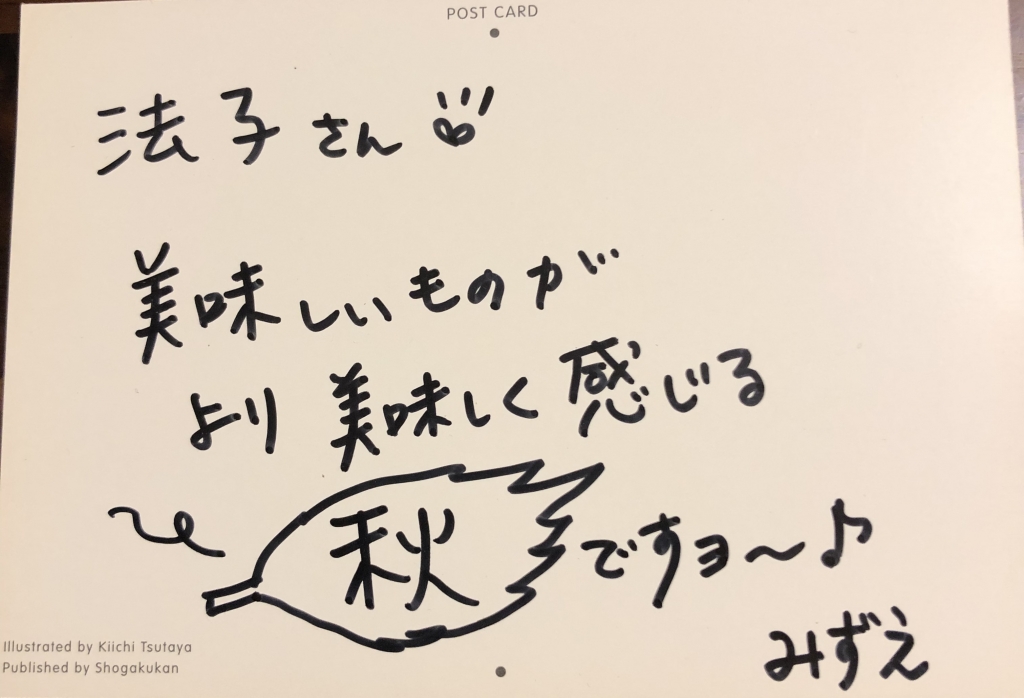 POST CARD
法子さん
美味しいものが
より美味しく感じる
秋ですョ〜♪
みずえ
Illustrated by Kiichi Tsutaya
Published by Shogakukan